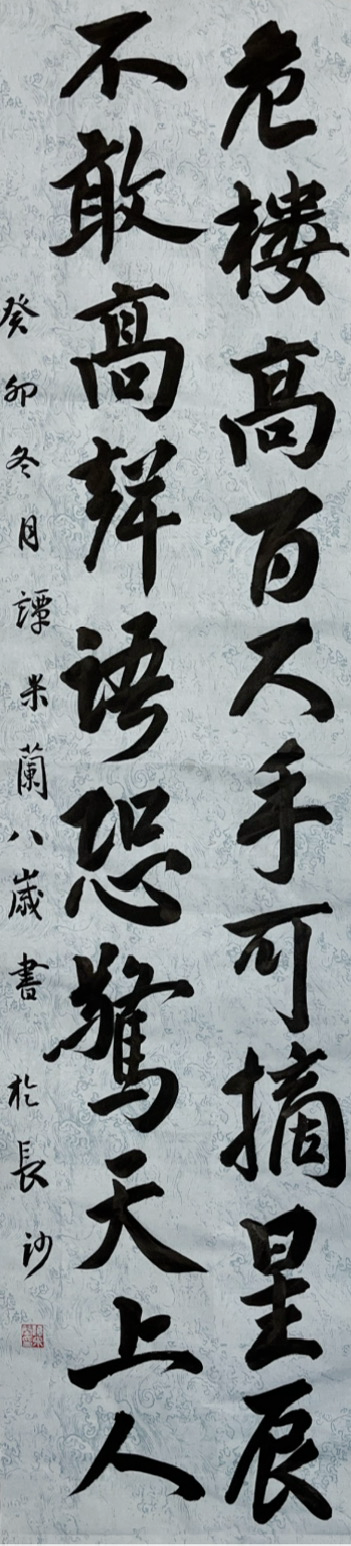 危楼高百尺手可摘星辰
不敢高聲语恐驚天上人
癸卯冬月譚米蘭八歲書於長沙